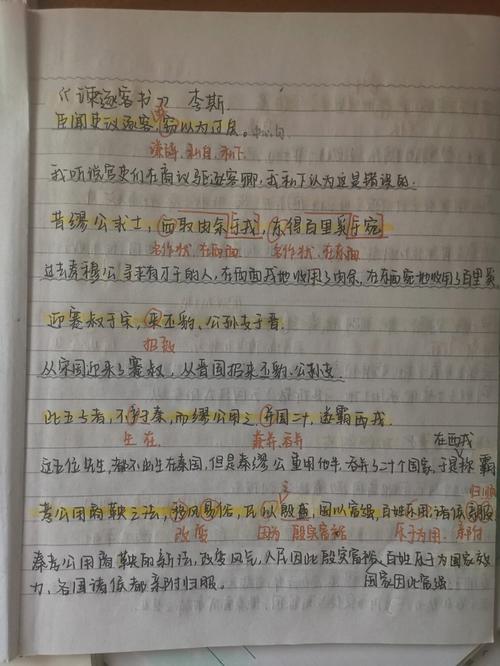 《谏逐客书》 李斯.
臣闻吏议逐客,窃以为过矣。中心句
谦辞.私自.私下
我听说官吏们在商议驱逐客卿,我私下认为这是错误的.
昔缪公求士,西取由余于戎,东得百里奚于宛
名作状.在西面 名作状.在东面
过去秦穆公寻求有才干的人,在西面戎地收用了由余,在东面宛地收用了百里奚
迎蹇叔于宋,来丕豹、公孙支于晋.
招致
从宋国迎来了蹇叔,从晋国招来丕豹、公孙支
此五子者,不产秦,而缪公用之,并国二十,遂霸西戎.
生在. 兼并.吞并 在西戎
这五位先生,都不出生在秦国,但是秦缪公重用他半.吞并了二十个国家,于是称霸
之 归顺
孝公用商鞅之法,移风易俗,民以殷盛,国以富强,百姓乐用,诸侯亲服
改变 因为 殷实富裕 乐于为用.亲附
秦孝公用商鞅的新法,改变风气,人民因此殷实富裕,百姓乐于为国家效
力,各国诸侯都亲附归服. 国家因此富强